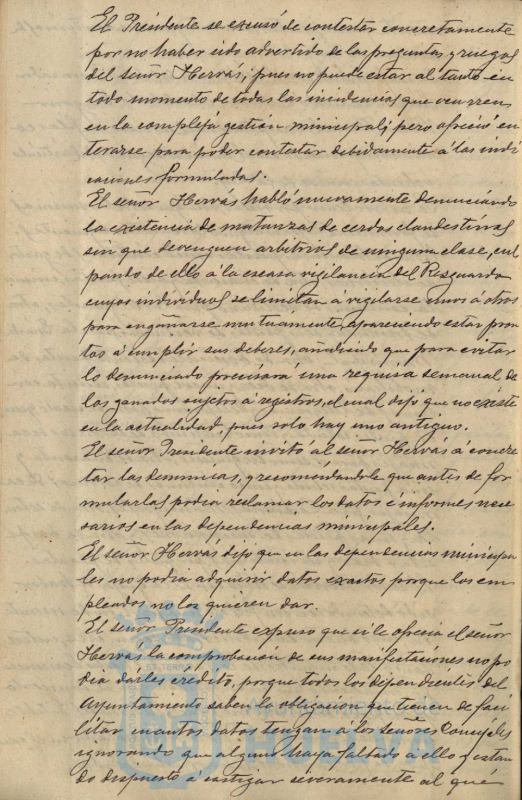 El Presidente se excusó de contestar concretamente
por no haber sido advertido de las preguntas y ruegos
del señor Hervás, pues no puede estar al tanto en
todo momento de todas las incidencias que ocurren
en la compleja gestión municipal; pero ofreció en
terarse para poder contestar debidamente á las indi
caciones formuladas.
El señor Hervás habló nuevamente denunciando
la existencia de matanzas de cerdos clandestinas
sin que devenguen arbitrios de ninguna clase, cul
pando de ello á la escasa vigilancia del Resguardo
cuyos individuos se limitan a vigilarse unos á otros
para engañarse mutuamente, apareciendo estar pron
tos á cumplir sus deberes, añadiendo que para evitar
lo denunciado precisará una requisa semanal de
los ganados sujetos á registros, el cual dijo que no existe
en la actualidad, pues solo hay uno antiguo.
El señor Presidente invitó al señor Hervás á concre
tar las denuncias, y recomendándole que antes de for
mularlas podia reclamar los datos é informes nece
sarios en las dependencias municipales.
El señor Hervás dijo que en las dependencias municipa
les no podia adquirir datos exactos porque los em
pleados no los quieren dar.
El señor Presidente expuso que si le ofrecia el señor
Hervás la comprobación de sus manifestaciones no po
dia darles crédito, porque todos los dependientes del
Ayuntamiento saben la obligacion que tienen de faci
litar cuantos datos tengan á los señores Concejales
ignorando que alguno haya faltado á ello y estan
do dispuesto á castigar severamente al que